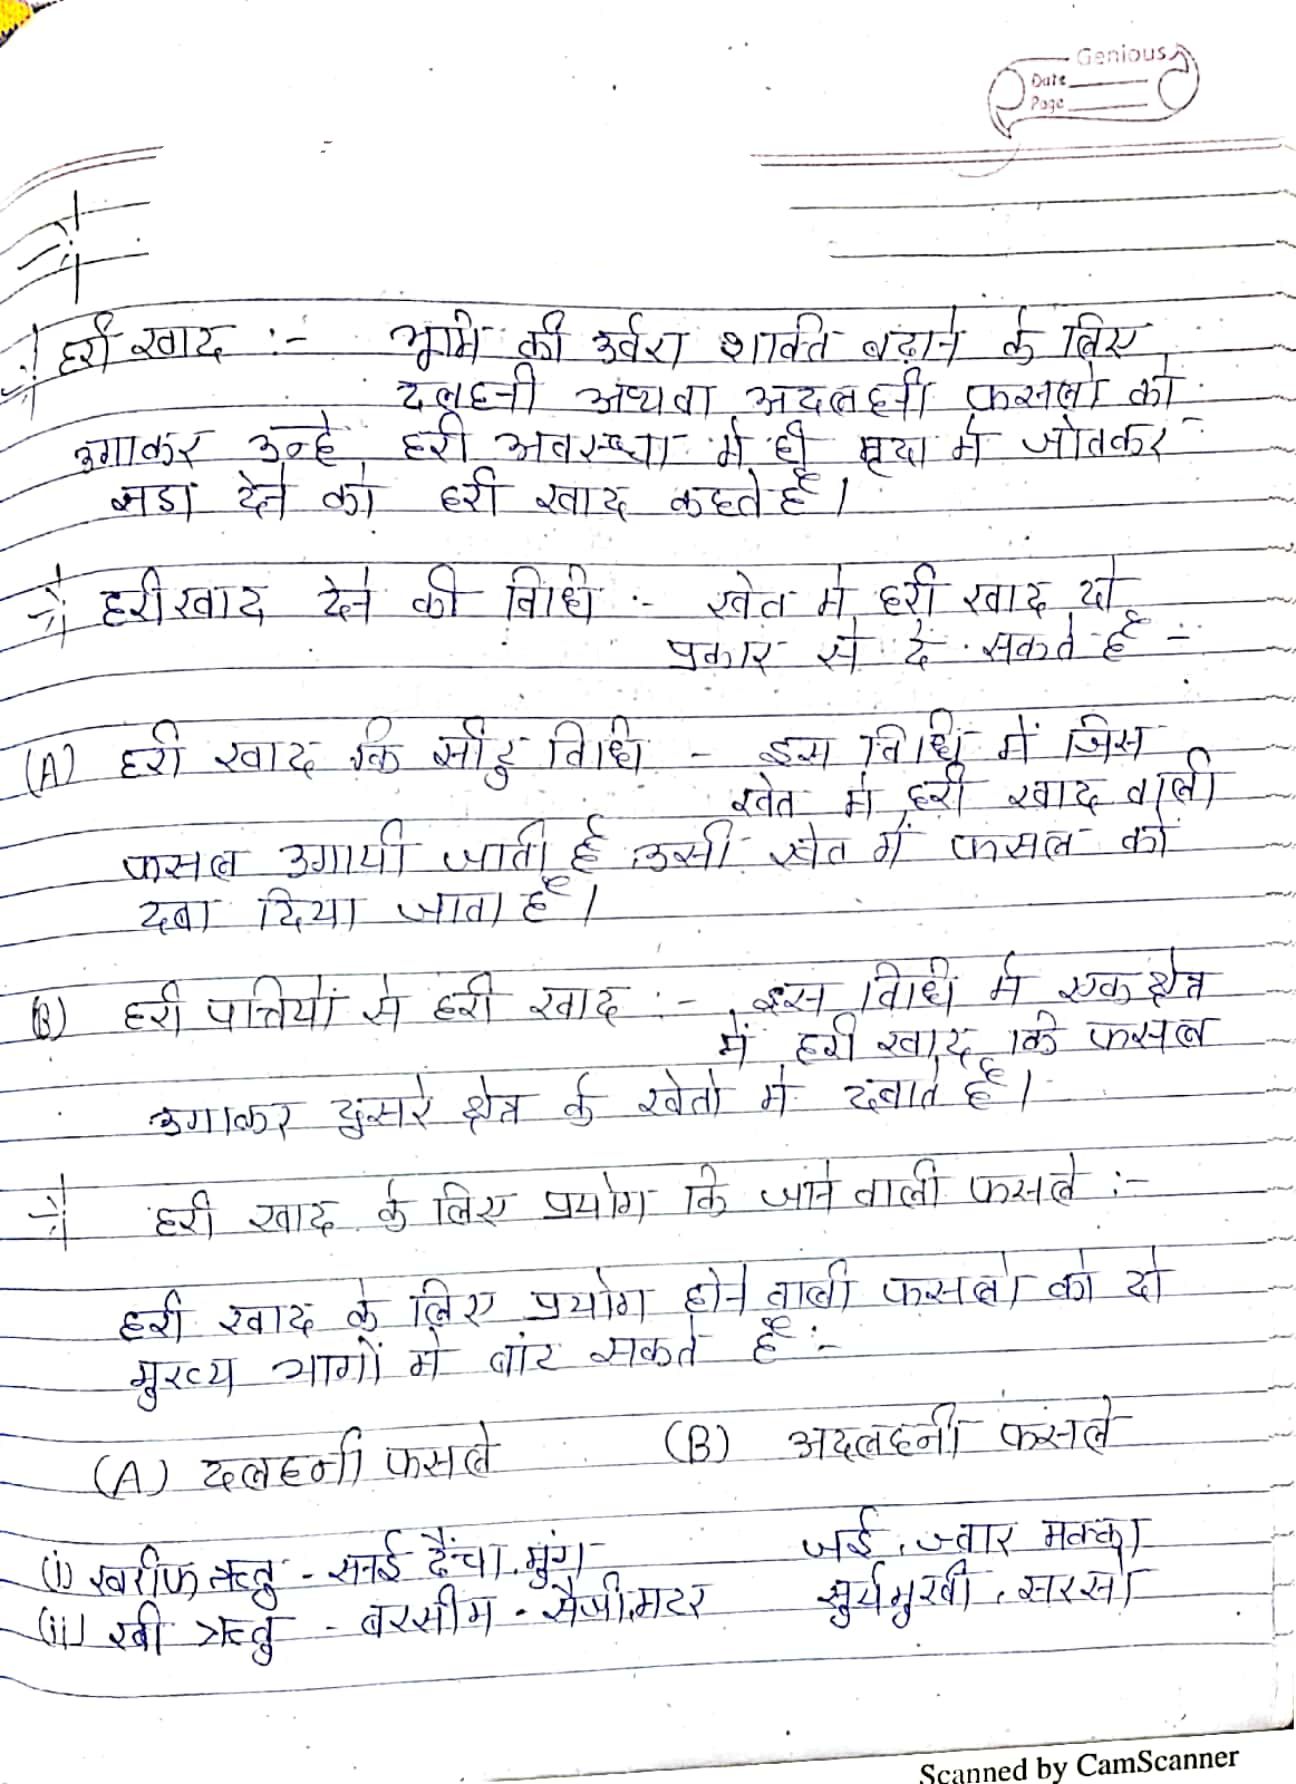 Genious
Date
Page
हरी खाद :- भूमि की उर्वरा शक्ति बढ़ाने के लिए
दलहनी अथवा अदलहनी फसलो को
उगाकर उन्हे हरी अवस्था में ही मृदा मे जोतकर
सडा देने को हरी खाद कहते है।
हरी खाद देने की विधि :- खेत मे हरी खाद दो
प्रकार से दे सकते है -
(A) हरी खाद कि सीटु विधि - इस विधि में जिस
खेत मे हरी खाद वाली
फसल उगायी जाती है उसी खेत में फसल को
दबा दिया जाता है।
(B) हरी पत्तियों से हरी खाद :- इस विधि मे एक क्षेत्र
में हरी खाद कि फसल
उगाकर दुसरे क्षेत्र के खेतो मे दबाते है।
हरी खाद के लिए प्रयोग कि जाने वाली फसले :-
हरी खाद के लिए प्रयोग होने वाली फसलो को दो
मुख्य भागों मे बांट सकते है :-
(A) दलहनी फसले (B) अदलहनी फसले
(i) खरीफ ऋतु - सनई ढैंचा, मुंग जई, ज्वार मक्का
(ii) रबी ऋतु - बरसीम - सैंजी, मटर सुर्यमुखी, सरसो
Scanned by CamScanner